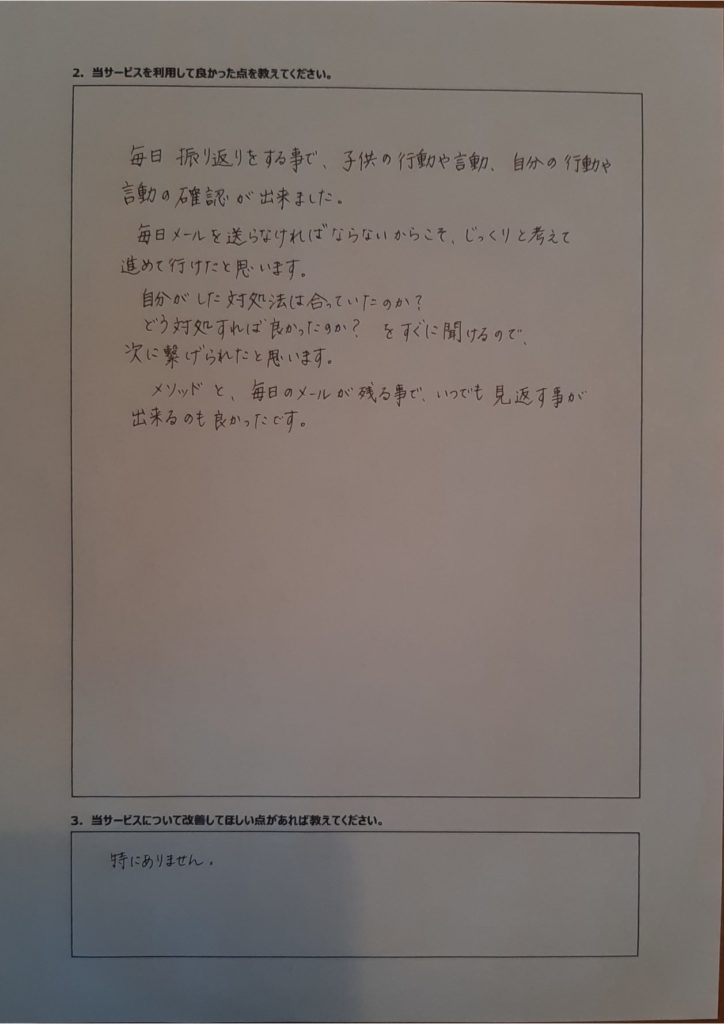 2. 当サービスを利用して良かった点を教えてください。
毎日 振り返りをする事で、子供の行動や言動、自分の行動や
言動の確認が出来ました。
毎日メールを送らなければならないからこそ、じっくりと考えて
進めて行けたと思います。
自分がした対処法は合っていたのか?
どう対処すれば良かったのか? をすぐに聞けるので、
次に繋げられたと思います。
メソッドと、毎日のメールが残る事で、いつでも見返す事が
出来るのも良かったです。
3. 当サービスについて改善してほしい点があれば教えてください。
特にありません。